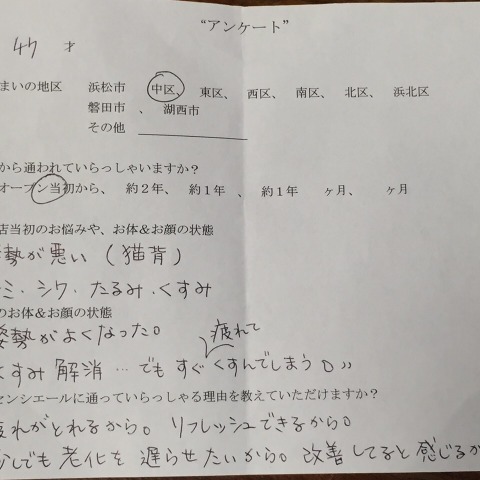 “アンケート”
47 才
まいの地区 浜松市 中区、 東区、 西区、 南区、 北区、 浜北区
磐田市 、 湖西市
その他
から通われていらっしゃいますか?
オープン当初から、 約2年、 約1年 、 約1年 ヶ月、 ヶ月
店当初のお悩みや、お体&お顔の状態
勢が悪い (猫背)
ミ・シワ・たるみ・くすみ
のお体&お顔の状態
姿勢がよくなった。
くすみ解消…でもすぐ疲れてくすんでしまう。
センシエールに通っていらっしゃる理由を教えていただけますか?
疲れがとれるから。リフレッシュできるから。
少しでも老化を遅らせたいから。改善してると感じるか